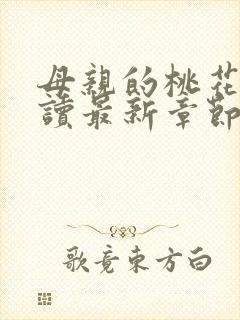 母親的桃花
讀最新章節
歌竟東方白